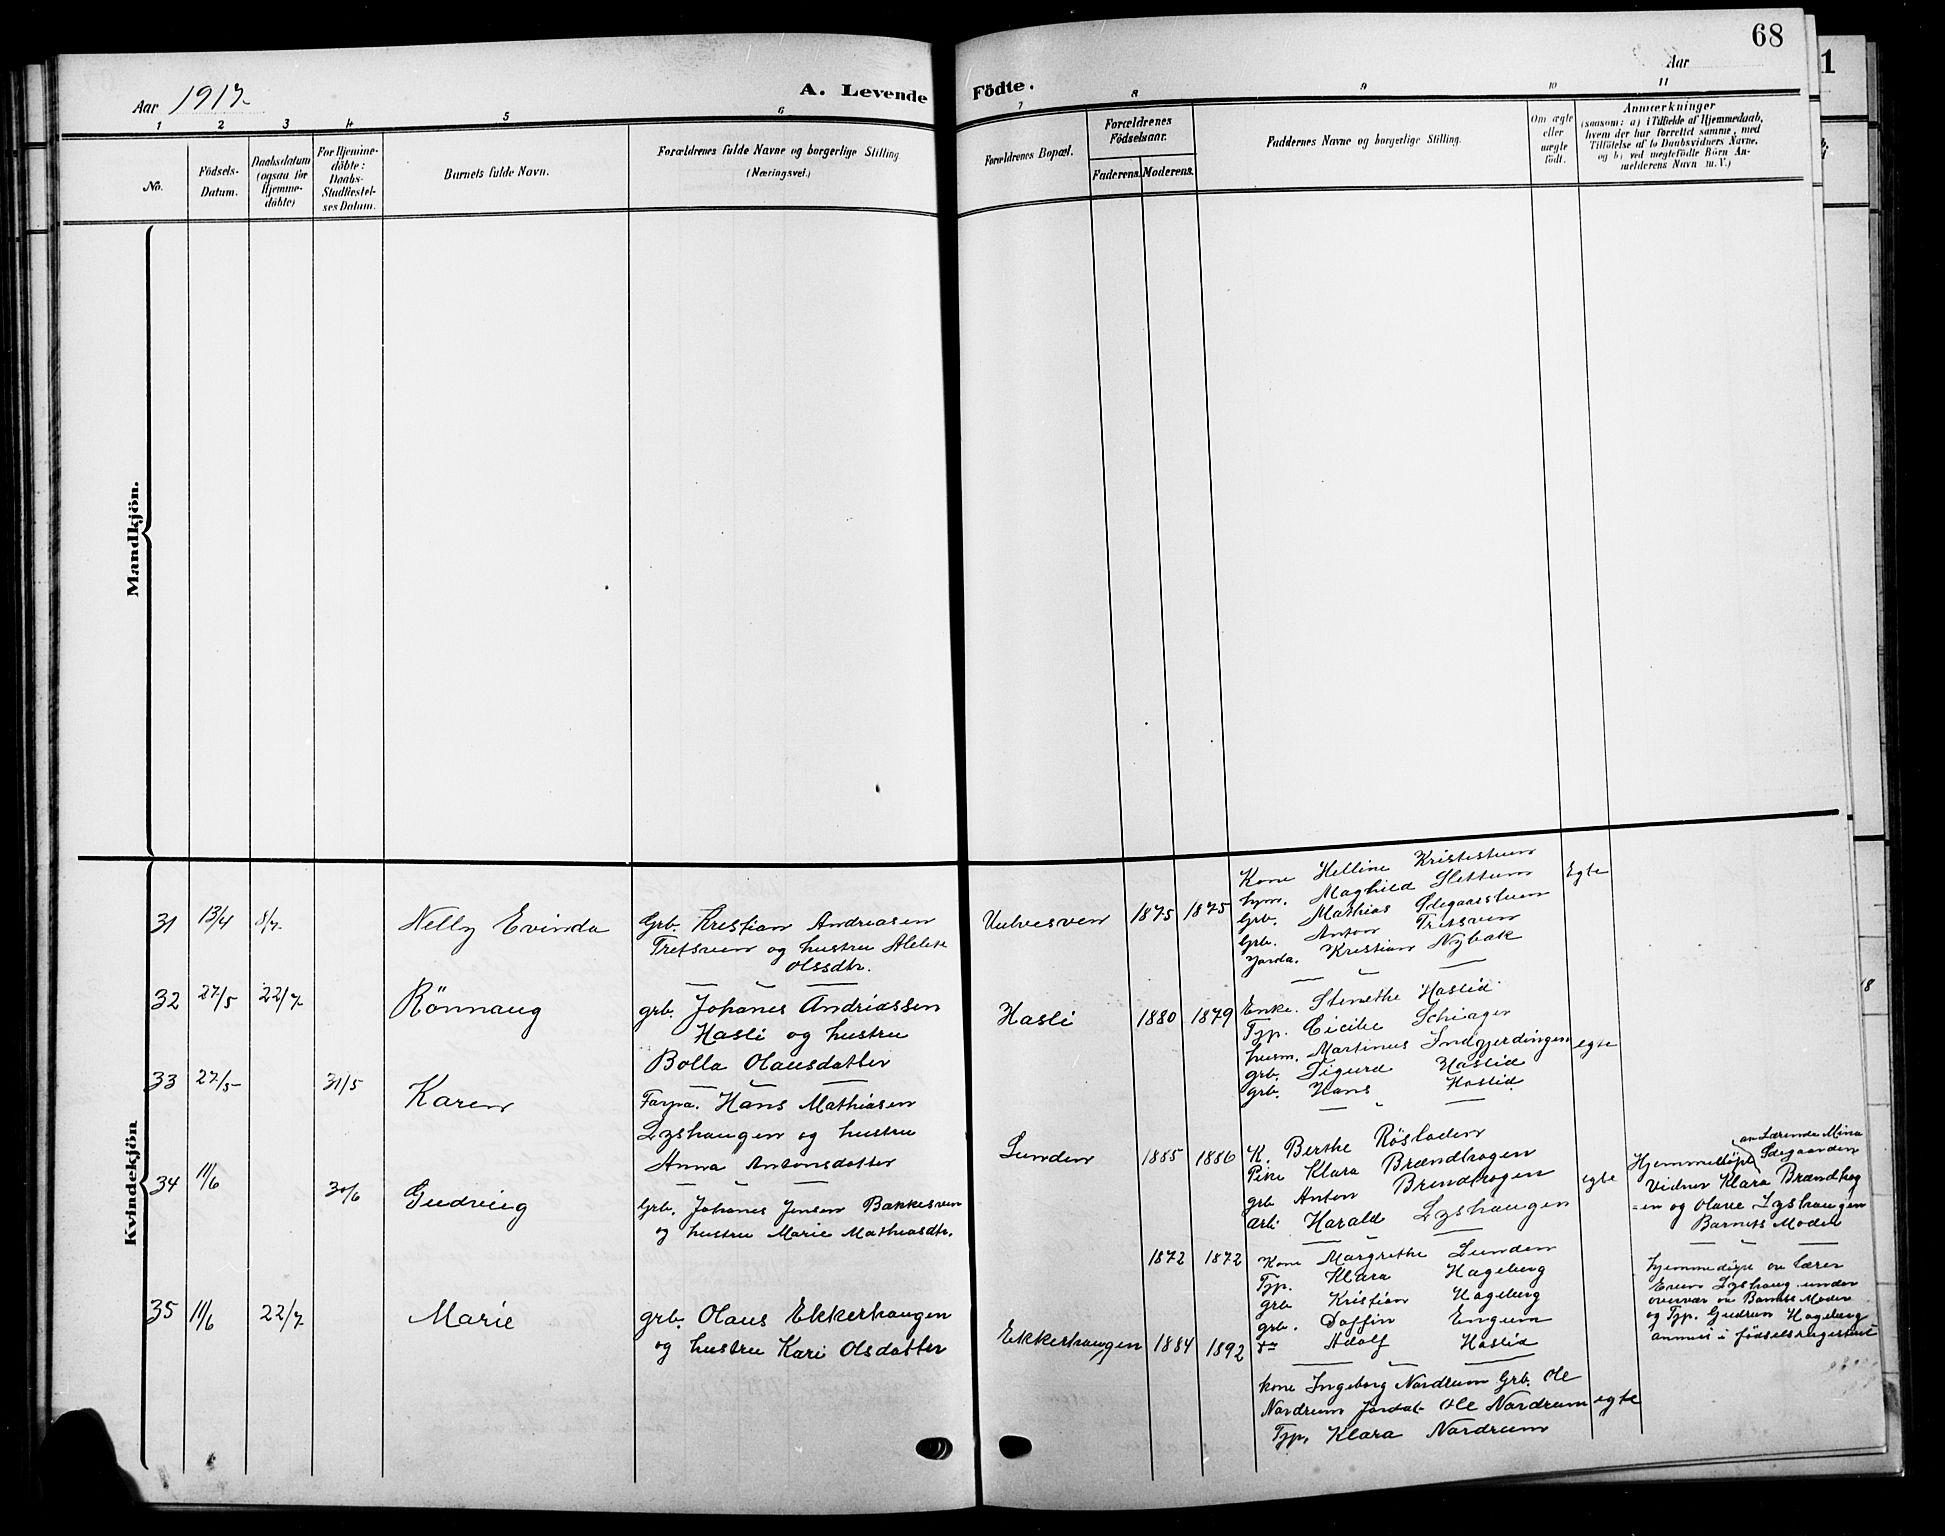 68
Aar 1917.
A. Levende Födte.
Aar
1 2 3 4 5 6 7 8 9 10 11
No.
Födsels-
Datum.
Daabsdatum
(ogsaa for
Hjemme-
döbte)
For Hjemme-
döbte:
Daabs-
Stadfæstel-
ses Datum.
Barnets fulde Navn.
Forældrenes fulde Navne og borgerlige Stilling
(Næringsvei.)
Forældrenes Bopæl.
Forældrenes
Födselsaar.
Faderens. Moderens.
Faddernes Navne og borgerlige Stilling.
Om ægte
eller
uægte
födt.
Anmærkninger
(saasom: a) i Tilfælde af Hjemmedaab,
hvem der har forrettet samme, med
Tilföielse af to Daabsvidners Navne,
og b) ved uegtefödte Börn An-
melderens Navn m. V.)
Mandkjön.
Kvindekjön
31 13/4 8/7.
Nelly Evinda
Grb. Kristian Andreasen
Tretsven og hustru
Olssdtr.
Uulvesven
1875 1875
Kone Helline
Hym. Maghild Slettum
Grb. Mathias
Grb. Anton Tretsven
Jorda. Kristian Nybak
Egte
32 27/5 22/7
Rönnaug
grb. Johanes Andriassen
Hasli og hustru
Bolla Olausdatter
Hasli
1880 1879
Enke. Stinethe Haslid.
Typ. Cicilie Schiager
husm. Martinus Indgjerdingen
grb. Sigurd Haslid
grb. Hans Haslid
egte
33 27/5 31/5
Karen
Forpa. Hans Mathiasen
Lyshaugen og hustru
Anna Antonsdatter
Lunden
1885 1886
K. Berthe Röstaden
Pike Klara Brændhagen
grb Anton Brendhagen
arb. Harald Lyshaugen
egte
Hjemmedöpt
av Lærerinde Mina
Ödegaarden
Vidner Klara Brændhag
=en og Olave Lyshaugen
Barnets Moder
34 11/6 30/6
Gudveig
Grb. Johanes Jensen Bakkesven
og hustru Marie Mathiasdtr.
1872 1872
Kone Margrethe Lunden
Typ. Klara Hageberg
grb Kristian Hageberg
grb. Daffin Engum
Adolf Haslid
hjemmedöpt av lærer
Even Lyshaug under
overvær av Barnets Moder
og Typ. Gudrun Hageberg
anmer i födselsregistret
35 11/6 22/7
Marie
grb. Olaus Ekkerhaugen
og hustru Kari Olsdatter
Ekkerhaugen
1884 1892
kone Ingeborg Nordrum Grb. Ole
Nordrum Jordat. Ole Nordrum
Typ. Klara Nordrum
egte